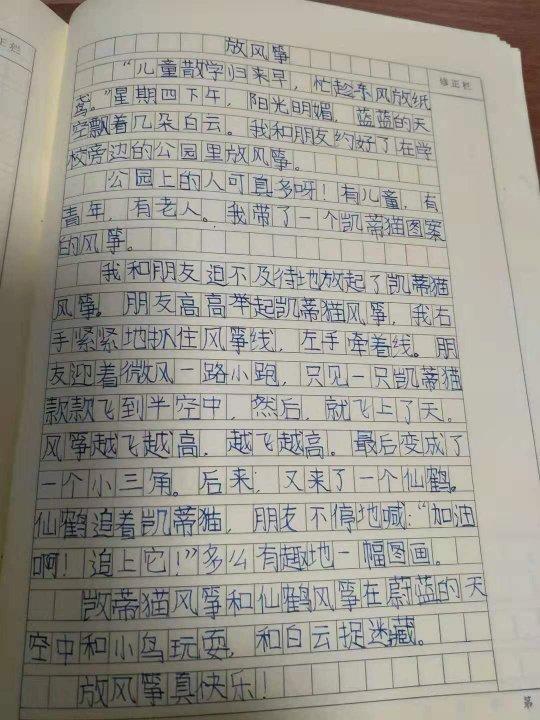 放风筝
修正栏
“儿童散学归来早，忙趁东风放纸
鸢。”星期四下午，阳光明媚，蓝蓝的天
空飘着几朵白云。我和朋友约好了在学
校旁边的公园里放风筝。
公园上的人可真多呀！有儿童，有
青年，有老人。我带了一个凯蒂猫图案
的风筝。
我和朋友迫不及待地放起了凯蒂猫
风筝。朋友高高举起凯蒂猫风筝，我右
手紧紧地抓住风筝线，左手牵着线。朋
友迎着微风一路小跑，只见一只凯蒂猫
款款飞到半空中，然后，就飞上了天。
风筝越飞越高，越飞越高。最后变成了
一个小三角。后来，又来了一个仙鹤。
仙鹤追着凯蒂猫，朋友不停地喊：“加油
啊！追上它！”多么有趣地一幅图画。
凯蒂猫风筝和仙鹤风筝在蔚蓝的天
空中和小鸟玩耍，和白云捉迷藏。
放风筝真快乐！
第